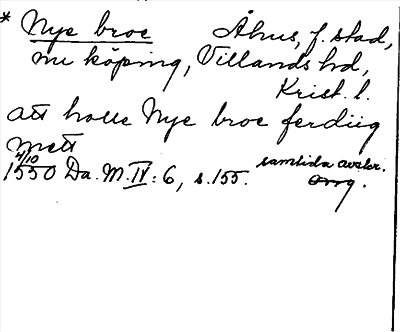 * Nye broe Åhus, f. stad,
nu köping, Villands hd,
Krist. l.
att holle Nye broe ferdiig
mett
4/10
1550 Da. M. IV: 6, s. 155. samtida avskr.